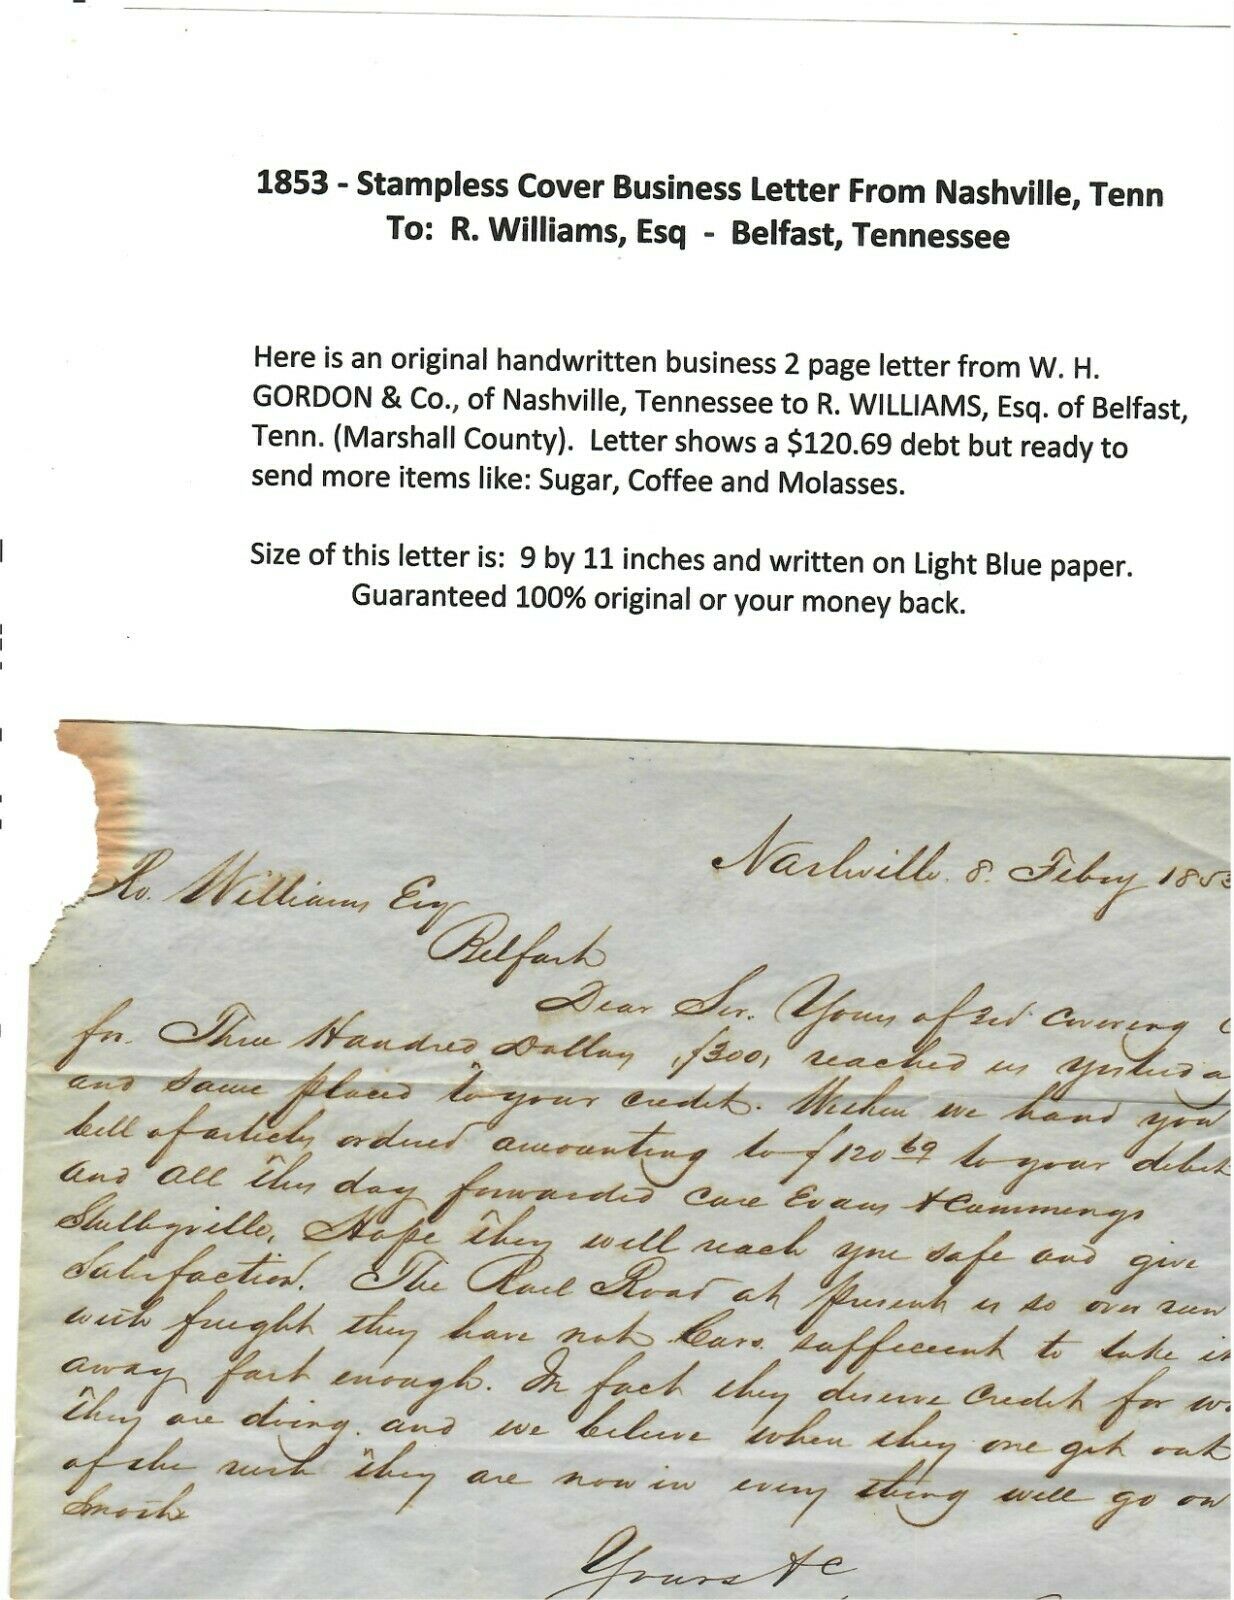 1853 - Stampless Cover Business Letter From Nashville, Tenn
To: R. Williams, Esq - Belfast, Tennessee
Here is an original handwritten business 2 page letter from W. H.
GORDON & Co., of Nashville, Tennessee to R. WILLIAMS, Esq. of Belfast,
Tenn. (Marshall County). Letter shows a $120.69 debt but ready to
send more items like: Sugar, Coffee and Molasses.
Size of this letter is: 9 by 11 inches and written on Light Blue paper.
Guaranteed 100% original or your money back.
Nashville. 8. Feby 1853
Ro. Williams Esq
Belfast
Dear Sir. Yours of 3rd covering
for Three Hundred Dollars, $300, reached us yesterda
and same placed to your credit. We hand you
bill of articles ordered amounting to $120 69 to your debit
and all this day forwarded care Evans & Cummings
Shelbyville, Hope they will reach you safe and give
Satisfaction. The Rail Road at present is so over run
with freight they have not Cars sufficient to take it
away fast enough. In fact they deserve credit for w
they are doing. and we believe when they one get out
of the rush they are now in every thing will go on
Smooth
Yours &c